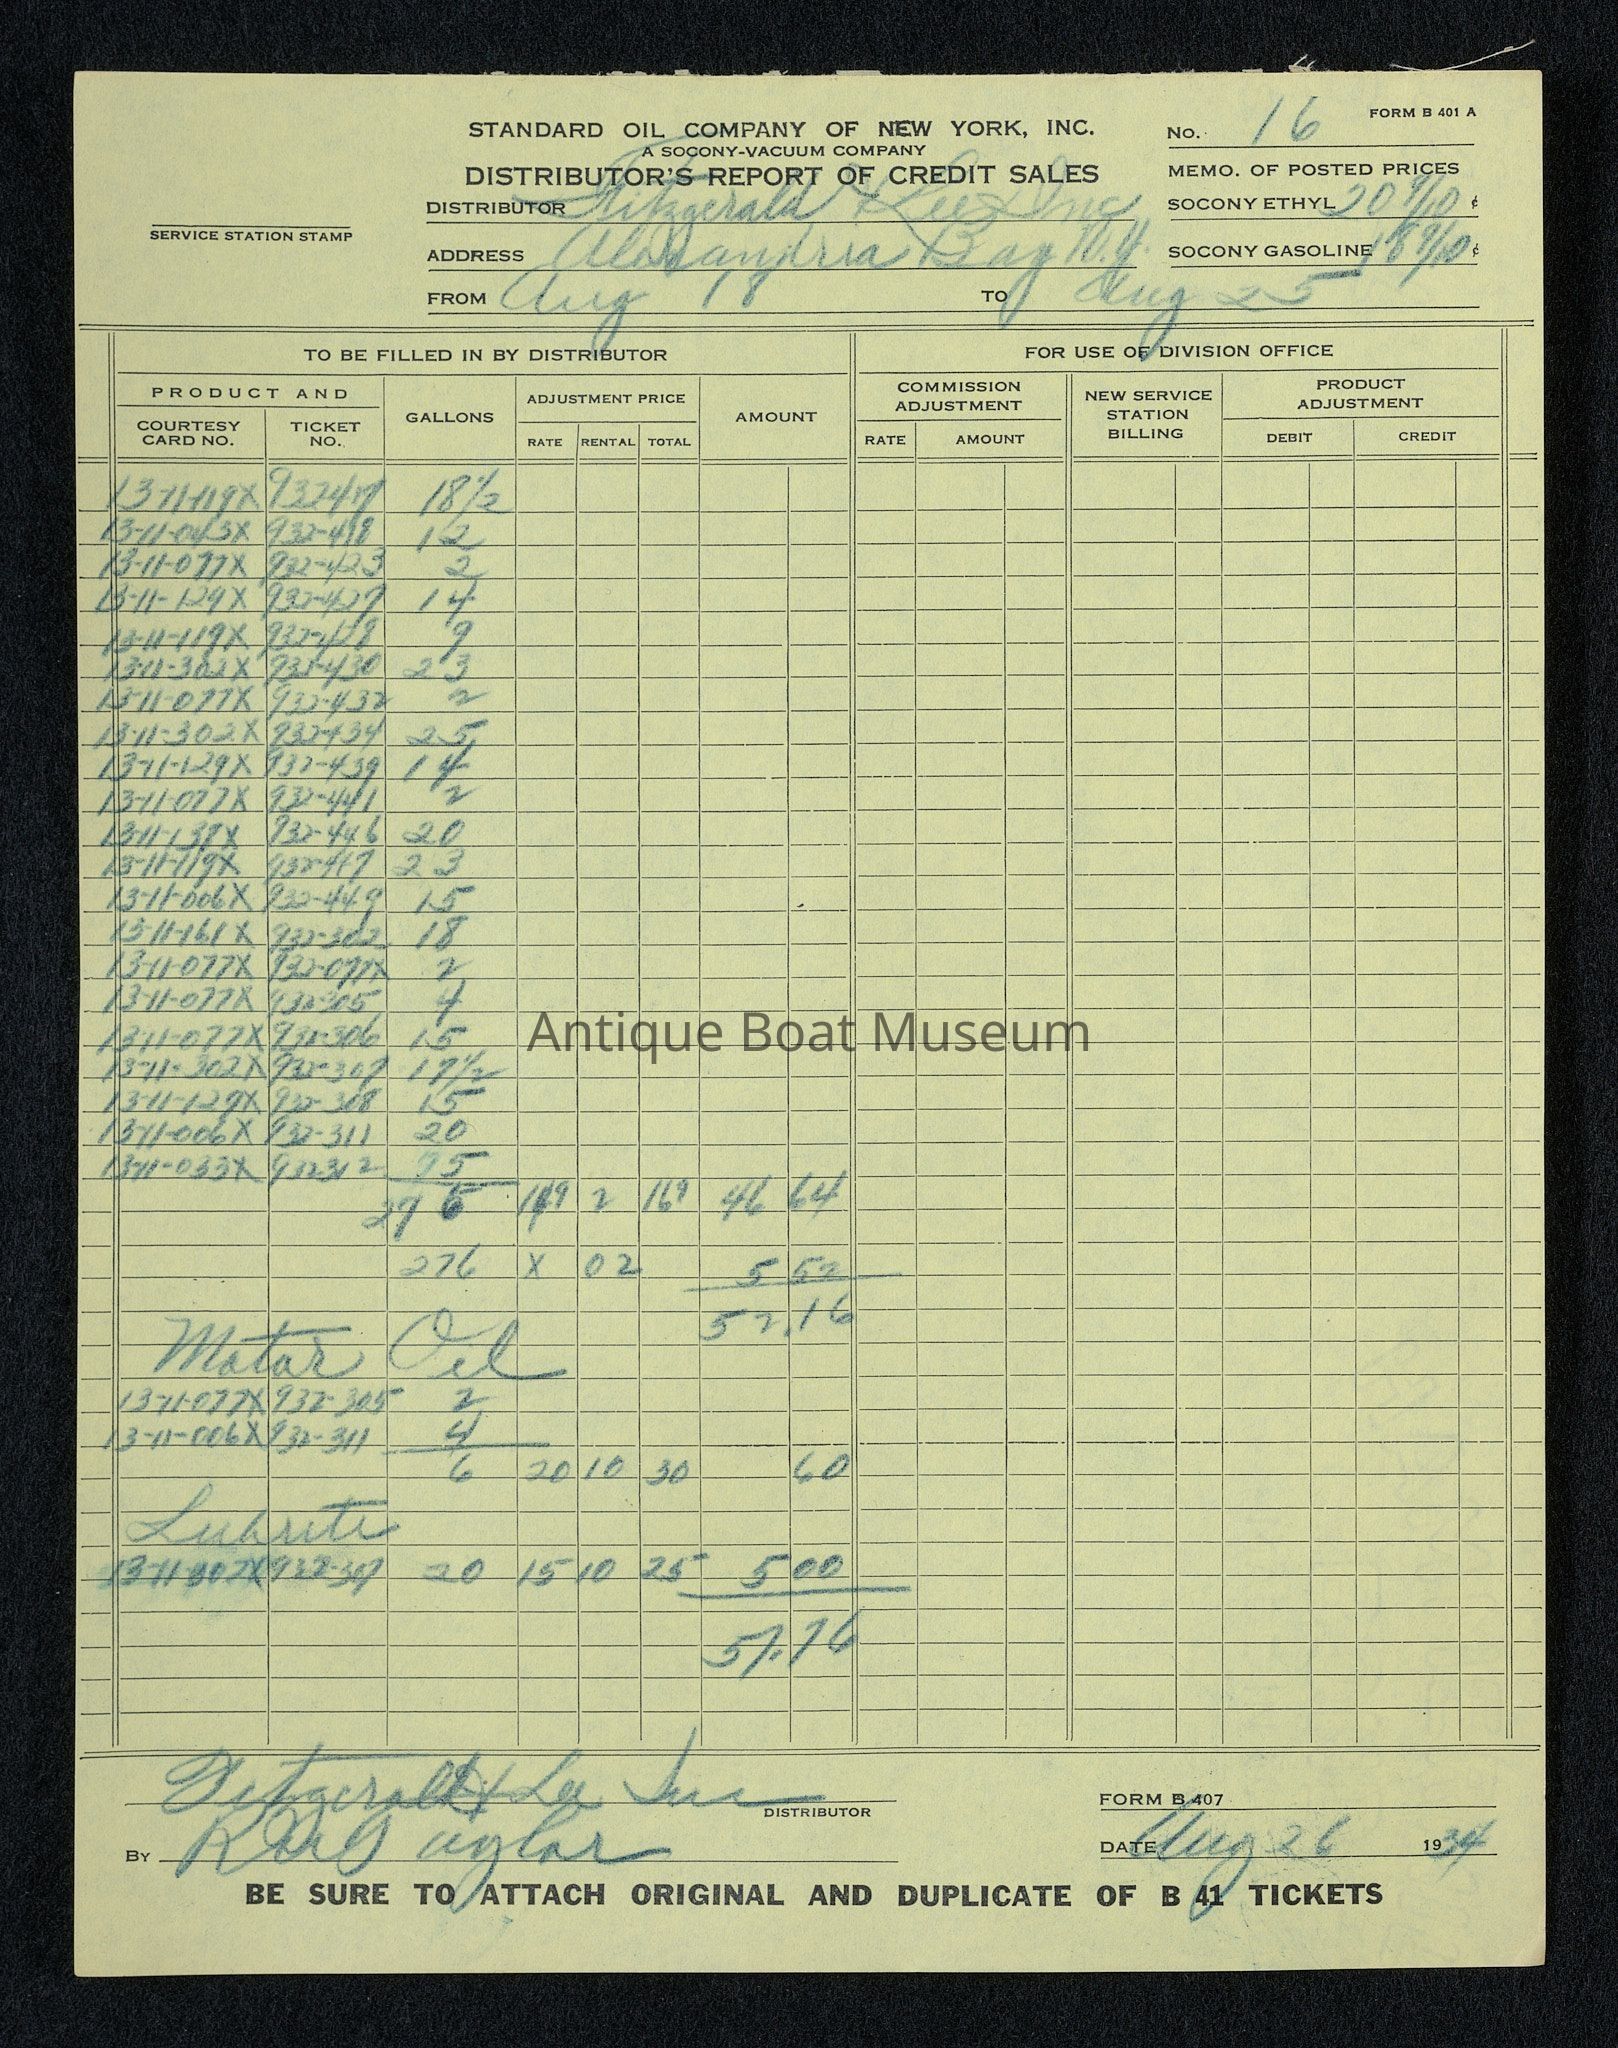 FORM B 401 A
NO. 16
STANDARD OIL COMPANY OF NEW YORK, INC.
A SOCONY-VACUUM COMPANY
DISTRIBUTOR'S REPORT OF CREDIT SALES
MEMO. OF POSTED PRICES
DISTRIBUTOR Fitzgerald & Lee Inc
SOCONY ETHYL 20 9/10 ¢
SERVICE STATION STAMP
ADDRESS Alexandria Bay N.Y.
SOCONY GASOLINE 18 9/10 ¢
FROM Aug 18 TO Aug 25
TO BE FILLED IN BY DISTRIBUTOR FOR USE OF DIVISION OFFICE
PRODUCT AND GALLONS ADJUSTMENT PRICE AMOUNT COMMISSION ADJUSTMENT NEW SERVICE STATION BILLING PRODUCT ADJUSTMENT
COURTESY CARD NO. TICKET NO. RATE RENTAL TOTAL RATE AMOUNT DEBIT CREDIT
13-11-119X 18 1/2
13-11-043X 932-418 12
13-11-077X 932-423 2
13-11-129X 932-427 14
13-11-119X 932-428 9
13-11-302X 932-430 23
13-11-077X 932-432 2
13-11-302X 932-434 25
13-11-129X 932-439 14
13-11-077X 932-441 2
13-11-138X 932-446 20
13-11-119X 932-447 23
13-11-006X 932-449 15
13-11-161X 932-302 18
13-11-077X 932-077X 2
13-11-077X 932-305 4
13-11-077X 932-306 15
13-11-302X 932-307 17 1/2
13-11-129X 932-308 15
13-11-006X 932-311 20
13-11-033X 932312 5
276 2 16 9 46 64
276 X 02 5 52
52.16
Motor Oil
13-11-077X 932-305 2
13-11-006X 932-311 4
6 20 10 30 60
Lubrite
13-11-307X 932-307 20 15 10 25 5 00
57.76
Antique Boat Museum
Fitzgerald & Lee Inc
DISTRIBUTOR
FORM B 407
BY Taylor
DATE Aug 26 1934
BE SURE TO ATTACH ORIGINAL AND DUPLICATE OF B 41 TICKETS